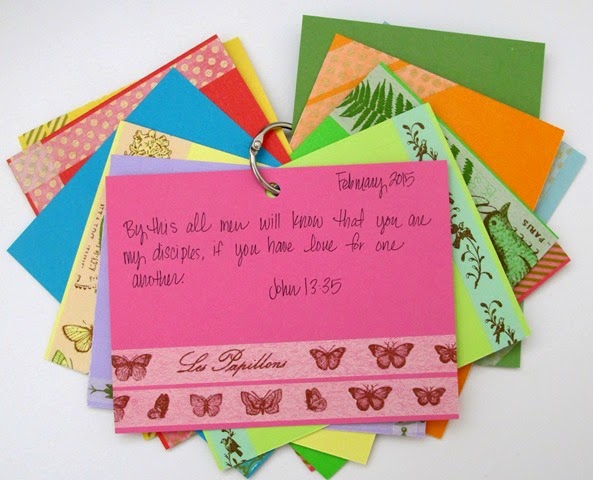 February 2015
By this all men will know that you are
my disciples, if you have love for one
another.
John 13:35
Les Papillons
PARIS